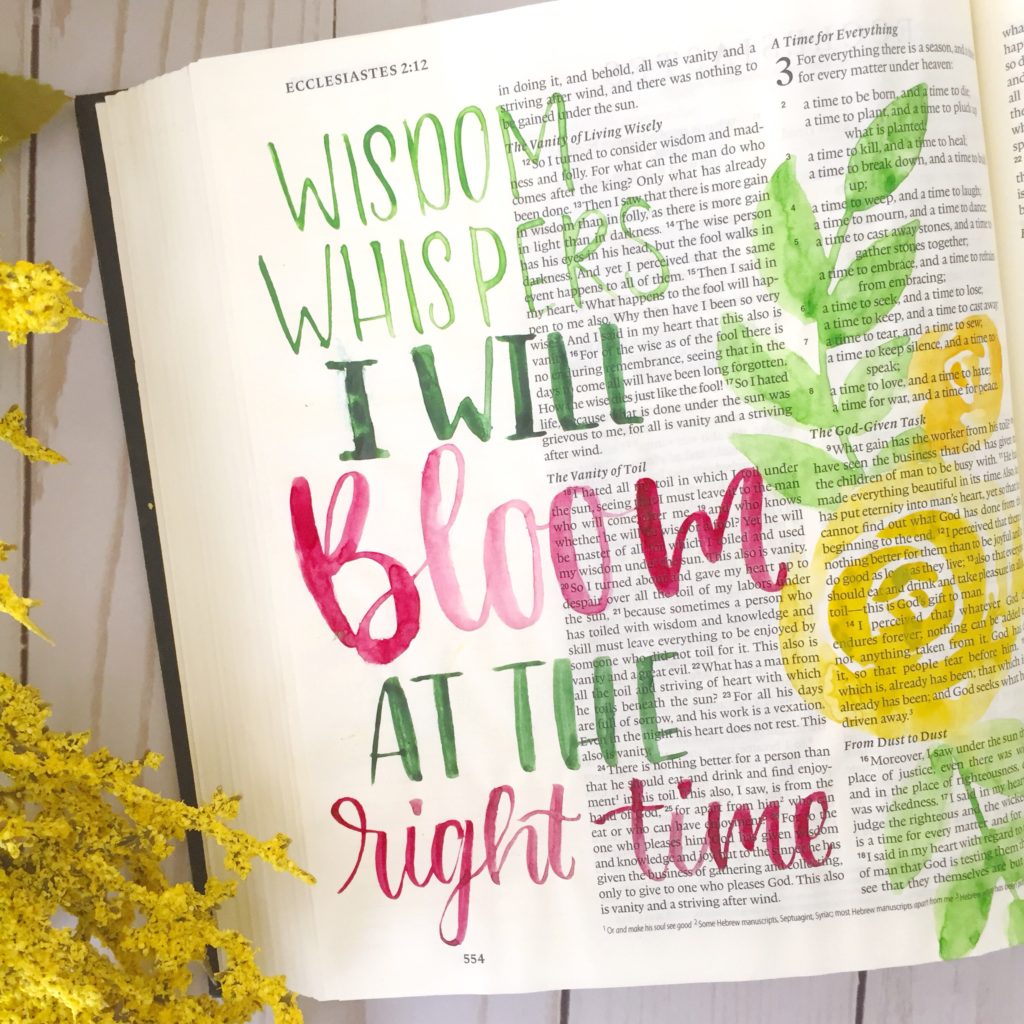 ECCLESIASTES 2:12
WISDOM
WHISPERS
I WILL
Bloom
AT THE
right time
in doing it, and behold, all was vanity and a
striving after wind, and there was nothing to
be gained under the sun.
The Vanity of Living Wisely
12 So I turned to consider wisdom and mad-
ness and folly. For what can the man do who
comes after the king? Only what has already
been done. 13 Then I saw that there is more gain
in wisdom than in folly, as there is more gain
in light than in darkness. 14 The wise person
has his eyes in his head, but the fool walks in
darkness. And yet I perceived that the same
event happens to all of them. 15 Then I said in
my heart, "What happens to the fool will hap-
pen to me also. Why then have I been so very
wise?" And I said in my heart that this also is
vanity. 16 For of the wise as of the fool there is
no enduring remembrance, seeing that in the
days to come all will have been long forgotten.
How the wise dies just like the fool! 17 So I hated
life, because what is done under the sun was
grievous to me, for all is vanity and a striving
after wind.
The Vanity of Toil
18 I hated all my toil in which I toil under
the sun, seeing that I must leave it to the man
who will come after me, 19 and who knows
whether he will be wise or a fool? Yet he will
be master of all for which I toiled and used
my wisdom under the sun. This also is vanity.
20 So I turned about and gave my heart up to
despair over all the toil of my labors under
the sun, 21 because sometimes a person who
has toiled with wisdom and knowledge and
skill must leave everything to be enjoyed by
someone who did not toil for it. This also is
vanity and a great evil. 22 What has a man from
all the toil and striving of heart with which
he toils beneath the sun? 23 For all his days
are full of sorrow, and his work is a vexation.
Even in the night his heart does not rest. This
also is vanity.
24 There is nothing better for a person than
that he should eat and drink and find enjoy-
ment1 in his toil. This also, I saw, is from the
hand of God, 25 for apart from him2 who can
eat or who can have enjoyment? 26 For to the
one who pleases him God has given wisdom
and knowledge and joy, but to the sinner he has
given the business of gathering and collecting,
only to give to one who pleases God. This also
is vanity and a striving after wind.
A Time for Everything
3 For everything there is a season, and a
for every matter under heaven:
2 a time to be born, and a time to die;
a time to plant, and a time to pluck up
what is planted;
3 a time to kill, and a time to heal;
a time to break down, and a time to build
up;
4 a time to weep, and a time to laugh;
a time to mourn, and a time to dance;
5 a time to cast away stones, and a time to
gather stones together;
a time to embrace, and a time to refrain
from embracing;
6 a time to seek, and a time to lose;
a time to keep, and a time to cast away;
7 a time to tear, and a time to sew;
a time to keep silence, and a time to
speak;
8 a time to love, and a time to hate;
a time for war, and a time for peace.
The God-Given Task
9 What gain has the worker from his toil?
have seen the business that God has given to
the children of man to be busy with. 11 He
made everything beautiful in its time. Also,
has put eternity into man's heart, yet so that
cannot find out what God has done from
beginning to the end. 12 I perceived that there
nothing better for them than to be joyful and
do good as long as they live; 13 also that every
should eat and drink and take pleasure in all
toil—this is God's gift to man.
14 I perceived that whatever God
dures forever; nothing can be added
nor anything taken from it. God has
it, so that people fear before him.
which is, already has been; that which is
already has been; and God seeks what
driven away.3
From Dust to Dust
16 Moreover, I saw under the sun
place of justice, even there was
and in the place of righteousness,
was wickedness. 17 I said in my heart
judge the righteous and the wicked
is a time for every matter and for
18 I said in my heart with regard to
of man that God is testing them
see that they themselves are but
1 Or and make his soul see good 2 Some Hebrew manuscripts, Septuagint, Syriac; most Hebrew manuscripts apart from me 3 Hebrew
554